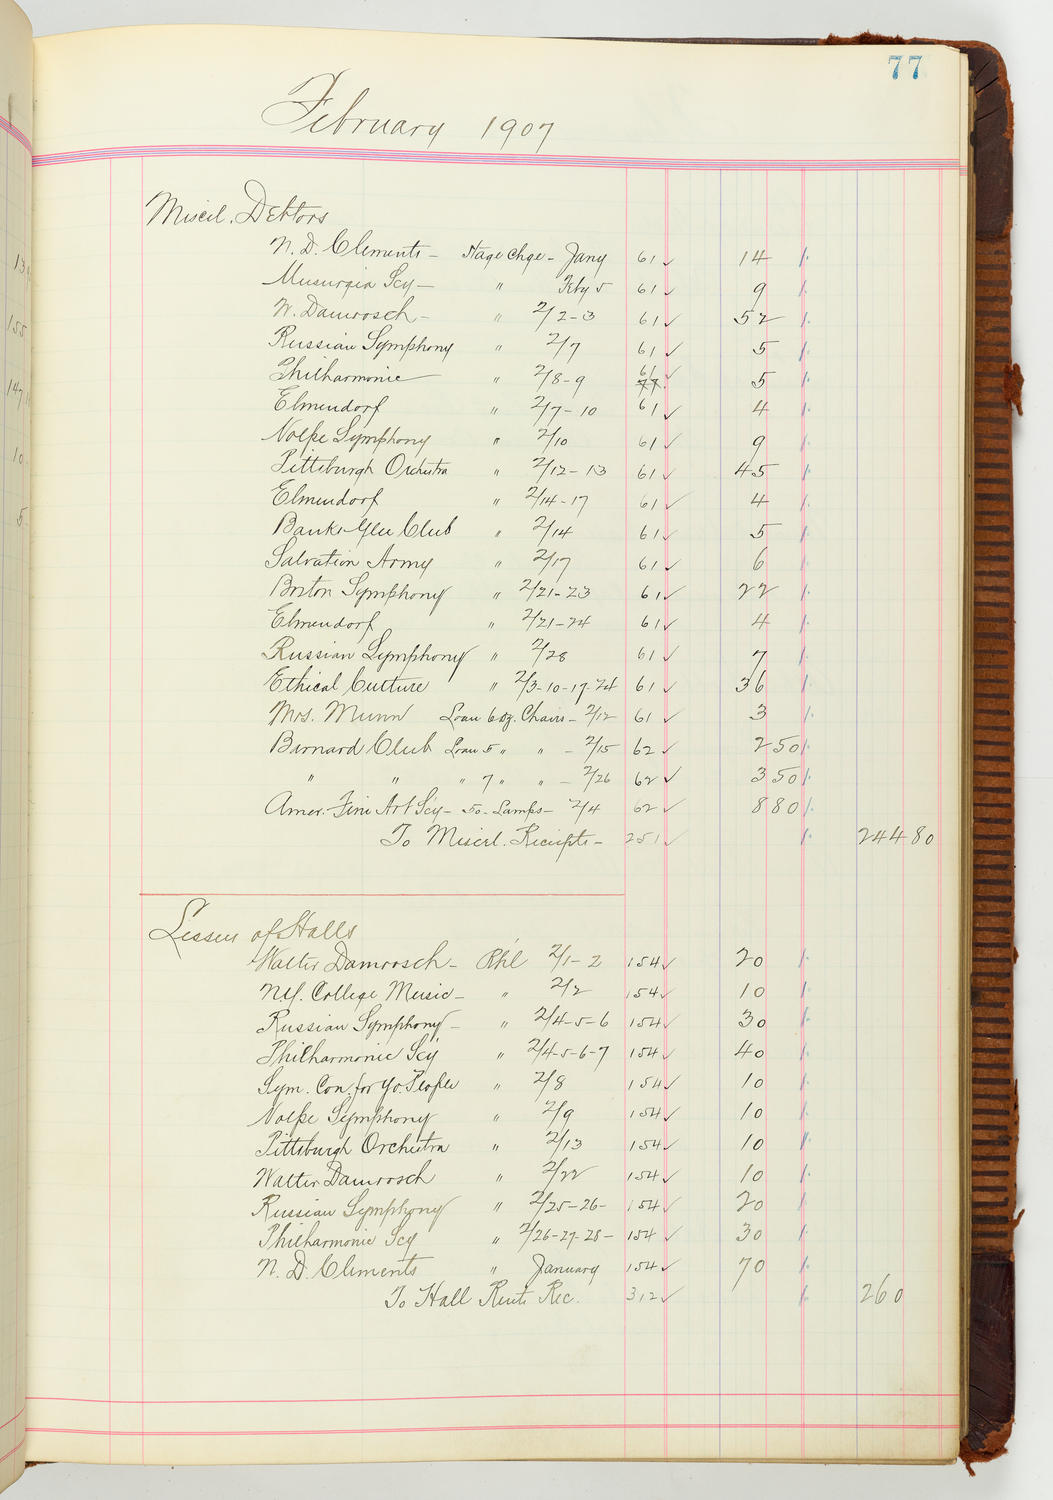 77
February 1907
Miscel. Debtors
N. D. Clements - Stage Chge - Jany 61 ✓ 14
Musurgia Scy - " Feby 5 61 ✓ 9
W. Damrosch - " 2/2-3 61 ✓ 52
Russian Symphony " 2/7 61 ✓ 5
Philharmonic " 2/8-9 61 ✓ 5
Elmendorf " 2/7-10 61 ✓ 4
Volpe Symphony " 2/10 61 ✓ 9
Pittsburgh Orchestra " 2/12-13 61 ✓ 45
Elmendorf " 2/14-17 61 ✓ 4
Banks Glee Club " 2/14 61 ✓ 5
Salvation Army " 2/17 61 ✓ 6
Boston Symphony " 2/21-23 61 ✓ 22
Elmendorf " 2/21-24 61 ✓ 4
Russian Symphony " 2/28 61 ✓ 7
Ethical Culture " 2/3-10-17-24 61 ✓ 36
Mrs. Munn Loan 6 dz. Chairs - 2/12 61 ✓ 3
Barnard Club Loan 5 " " - 2/15 62 ✓ 2 50
" " " 7 " " - 2/26 62 ✓ 3 50
Amer. Fine Art Scy - 50 - Lamps - 2/4 62 ✓ 8 80
To Miscel. Receipts - 251 ✓ 244 80
Lessees of Halls
Walter Damrosch - Rh'l 2/1-2 154 ✓ 20
N.Y. College Music - " 2/2 154 ✓ 10
Russian Symphony - " 2/4-5-6 154 ✓ 30
Philharmonic Scy " 2/4-5-6-7 154 ✓ 40
Sym. Con. for Yo. People " 2/8 154 ✓ 10
Volpe Symphony " 2/9 154 ✓ 10
Pittsburgh Orchestra " 2/13 154 ✓ 10
Walter Damrosch " 2/22 154 ✓ 10
Russian Symphony " 2/25-26- 154 ✓ 20
Philharmonic Scy " 2/26-27-28- 154 ✓ 30
N. D. Clements " January 154 ✓ 70
To Hall Rents Rec. 312 ✓ 260